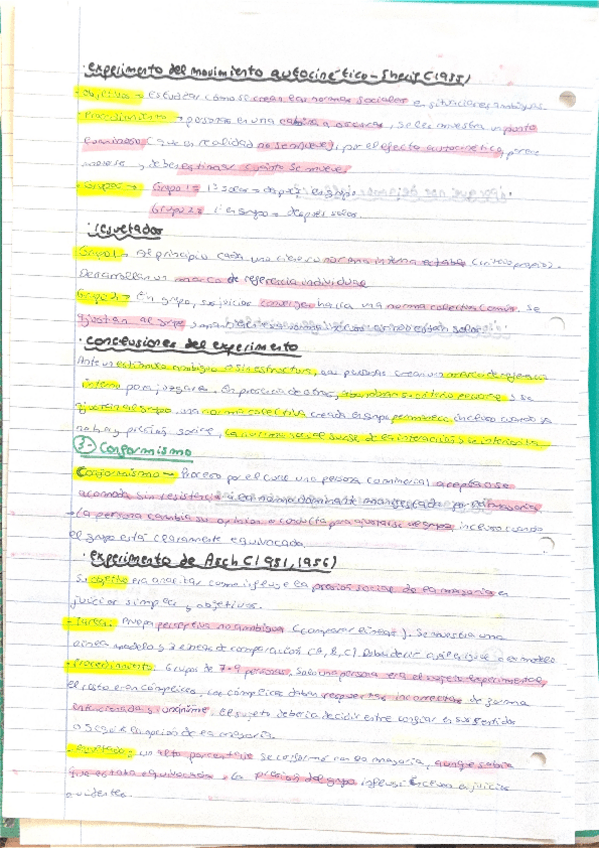 · Experimento del movimiento autocinético - Sherif (1935)
- Objetivo → estudiar cómo se crean las normas sociales en situaciones ambiguas.
- Procedimiento → personas en una cabina a oscuras, se les muestra un punto
luminoso (que en realidad no se mueve), por el efecto autocinético, parece
moverse y deben estimar cuánto se mueve.
- Grupos → Grupo 1: 1º solos → después en grupo.
Grupo 2: 1º en grupo → después solos.
· resultados
Grupo 1 → Al principio cada uno crea su norma interna estable (criterio propio).
Desarrollan un marco de referencia individual
Grupo 2 → En grupo, sus juicios convergen hacia una norma colectiva común. Se
ajustan al grupo
· Conclusiones del experimento
Ante un estímulo ambiguo o sin estructura, las personas crean un marco de referencia
interno para juzgar. En presencia de otros, abandonan su criterio y se
ajustan al grupo. una norma colectiva creada en grupo permanece incluso cuando ya
no hay presión social, la norma social surge de la interacción y se interioriza.
3- Conformismo
Conformismo → Proceso por el cual una persona o minoría acepta o se
acomoda sin resistencia a la norma dominante manifestada por
→ La persona cambia su opinión o conducta para ajustarse al grupo incluso cuando
el grupo está claramente equivocado.
· experimento de Asch (1951, 1956)
Su objetivo era analizar cómo influye la presión social de la mayoría en
juicios simples y objetivos.
- Tarea: Prueba perceptiva no ambigua (comparar líneas). Se muestra una
línea modelo y 3 líneas de comparación (A, B, C). Debe decir cuál es igual al modelo
- Procedimiento: Grupos de 7-9 personas. Solo una persona era el sujeto experimental,
el resto eran cómplices, Los cómplices daban respuestas incorrectas de forma
intencionada y unánime. El sujeto debería decidir entre confiar en sus sentidos
o seguir la opinión de la mayoría.
- resultado: un alto porcentaje se conformó con la mayoría, aunque sabía
que estaba equivocada → La presión del grupo influye incluso en juicios
evidentes.